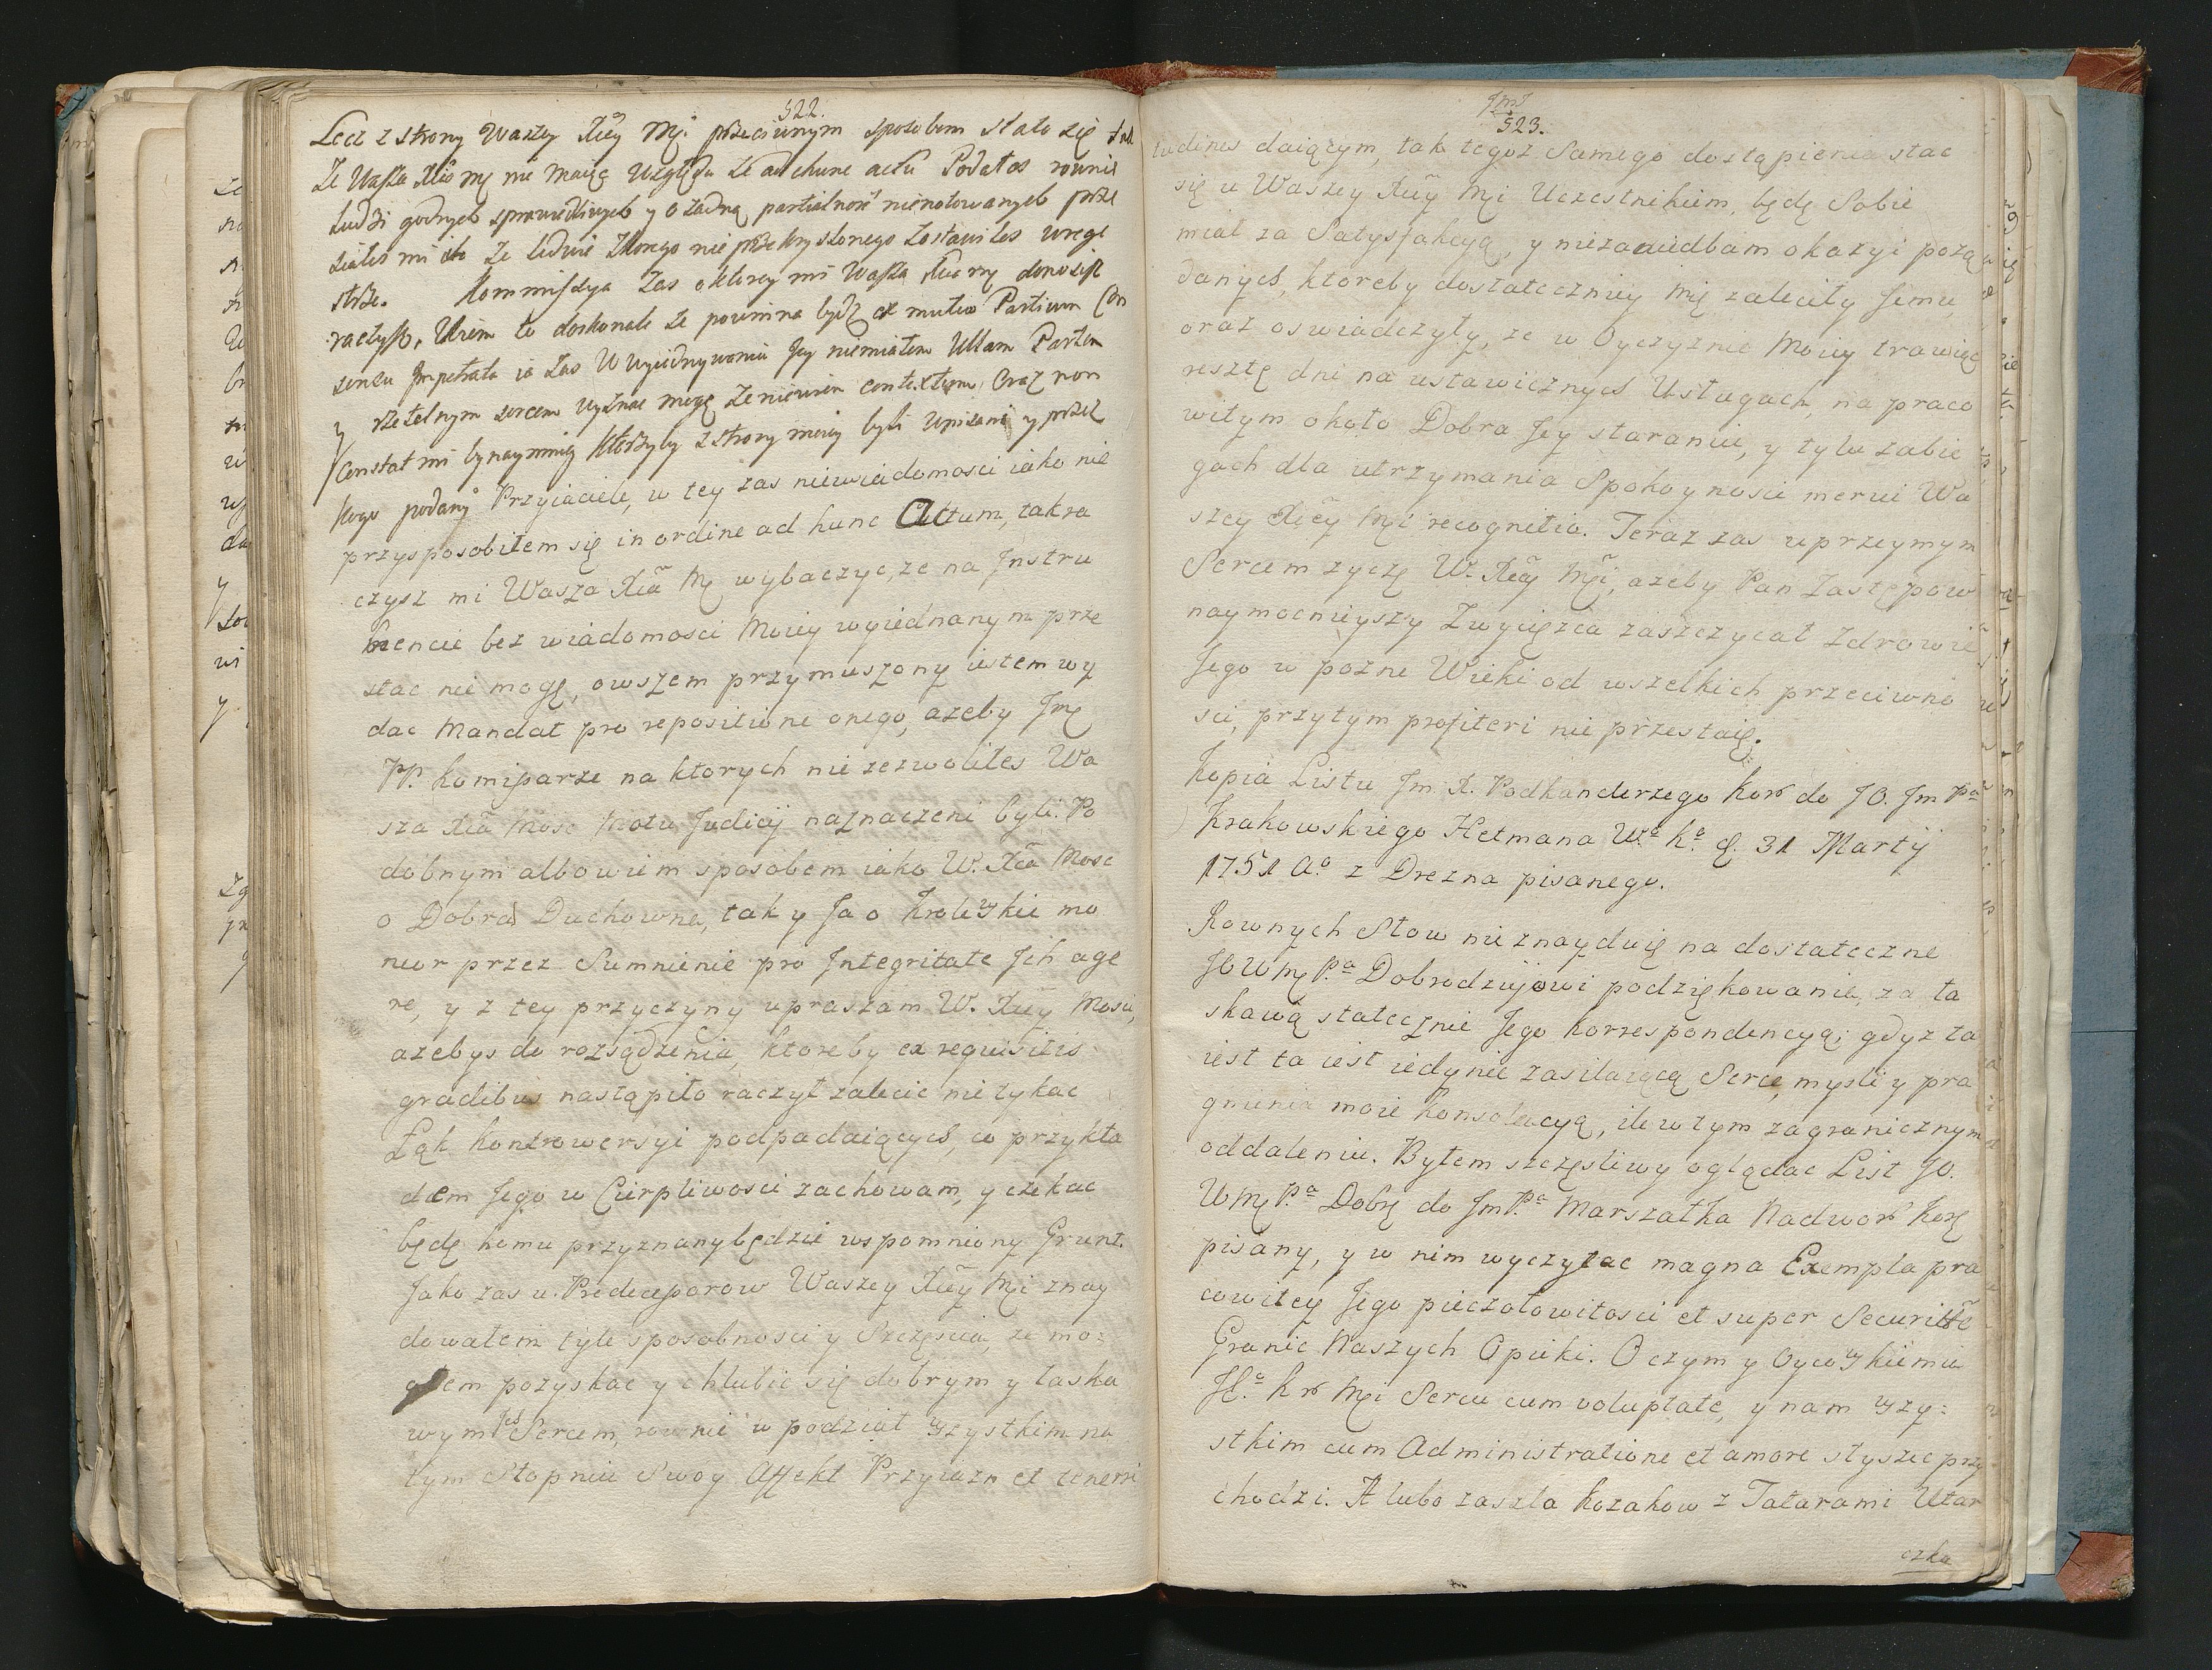 522.
Lecz z strony Waszey Xcey Mci przeciwnym sposobem stało się
Ze Wasza Xca Mć nie maiąc względu ze ad hunc actu Podałes rownie
Ludzi godnych sprawiedliwych y o żadną partialność nienotowanych prze
słałes mi ze ledwie ktorego nie przekryslonego zostawiles w rege
strze. Kommissya zas o ktorey mi Wasza Xca mć donosisz
raczysz, Wiem to doskonale ze powinna bydz ex mutuo Partium Con
sensu Impetrata ia zas w wyiednywaniu Jey niemiałem Ullam Partem
y rzetelnym sercem wyznac mogę ze niewiem contextum, Oraz non
Constat mi bynaymniey ktorzyby z strony moiey byli wpisani y przez
kogo podani Przyiaciele, w tey zas niewiadomosci iako nie
przysposobiłem się in ordine ad hunc Actum, tak ra
czysz mi Wasza Xca Mć wybaczyc, ze na Instru
mencie bez wiadomosci Moiey wyiednanym prze
stac nie mogę, owszem przymuszony iestem wy
dac Mandat pro repositione onego, azeby Jmć
PP. Komissarze na ktorych nie zezwoliłes Wa
sza Xca Mosc Motu Judicij naznaczeni byli. Po
dobnym albowiem sposobem iako W. Xca Mosc
o Dobra Duchowne, tak y Ja o Krolewskie mo
neor przez Sumnienie pro Integritate Jch age
re, y z tey przyczyny upraszam W. Xcey Mosci,
azebys do rozsądzenia, ktoreby ex requisitis
gradibus nastąpiło raczył zalecic nie tykac
Łąk kontrowersyi podpadaiących, co przykła
dem Jego w Cierpliwosci zachowam, y czekac
będę komu przyznany będzie wspomniony Grunt.
Jako zas u Predecessorow Waszey Xcey Mci znay
dowałem tyle sposobnosci y Szczęscia, ze mo=
głem pozyskac y chlubic się dobrym y łaska
wym Jch Sercem, rownie w podział wszystkim na
tym Stopniu Swoy Affekt Przyiazn et teneri
523.
tudines daiązym, tak tegoz Samego dostąpienia stac
się u Waszey Xcey Mci Uczestnikiem, będę Sobie
miał za Satysfakcyą, y niezaniedbam okazyi pożą
danych, ktoreby dostateczniey Mię zaleciły Jemu,
oraz oswiadczyły, ze w Oyczyznie Moiey trawiąc
resztę dni na ustawicznych Usługach, na praco
witym około Dobra Jey staraniu, y tylu zabie
gach dla utrzymania Spokoynosci merui Wa
szey Xcey Mci recognitio. Teraz zas uprzeymym
Sercem zyczę W. Xcey Mci, azeby Pan Zastępow
naymocnieyszy Zwycięzca zaszczycał Zdrowie
Jego w pozne Wieki od wszelkich przeciwno
sci, przytym profiteri nie przestaię.
Kopia Listu Jm X. Podkanclerzego Kor do JO. Jm Pa
Krakowskiego Hetmana Wo Ko d. 31 Martij
1751 Ao z Drezna pisanego.
Rownych Słow nie znayduię na dostateczne
JO WMć Pa Dobrodziejowi podziękowanie, za ła
skawą statecznie Jego Korrespondencyą; gdyz ta
iest ta iest iedynie zasilaiącą Serce, mysli y pra
gnienia moie Konsolacyą, ile w tym zagranicznym
oddaleniu. Byłem szczęsliwy oglądac List JO.
WMć Pa Dobr do Jm Pa Marszałka Nadwor Kor
pisany, y w nim wyczytac magna Exempla pra
cowitey Jego pieczołowitosci et super Securitate
Granic Naszych Opieki. O czym y Oycowskiemu
JKr Mci Sercu cum voluptate, y nam wszy=
stkim cum Administratione et amore słyszec przy
chodzi. A lubo zaszła Kozakow z Tatarami Utar
czka